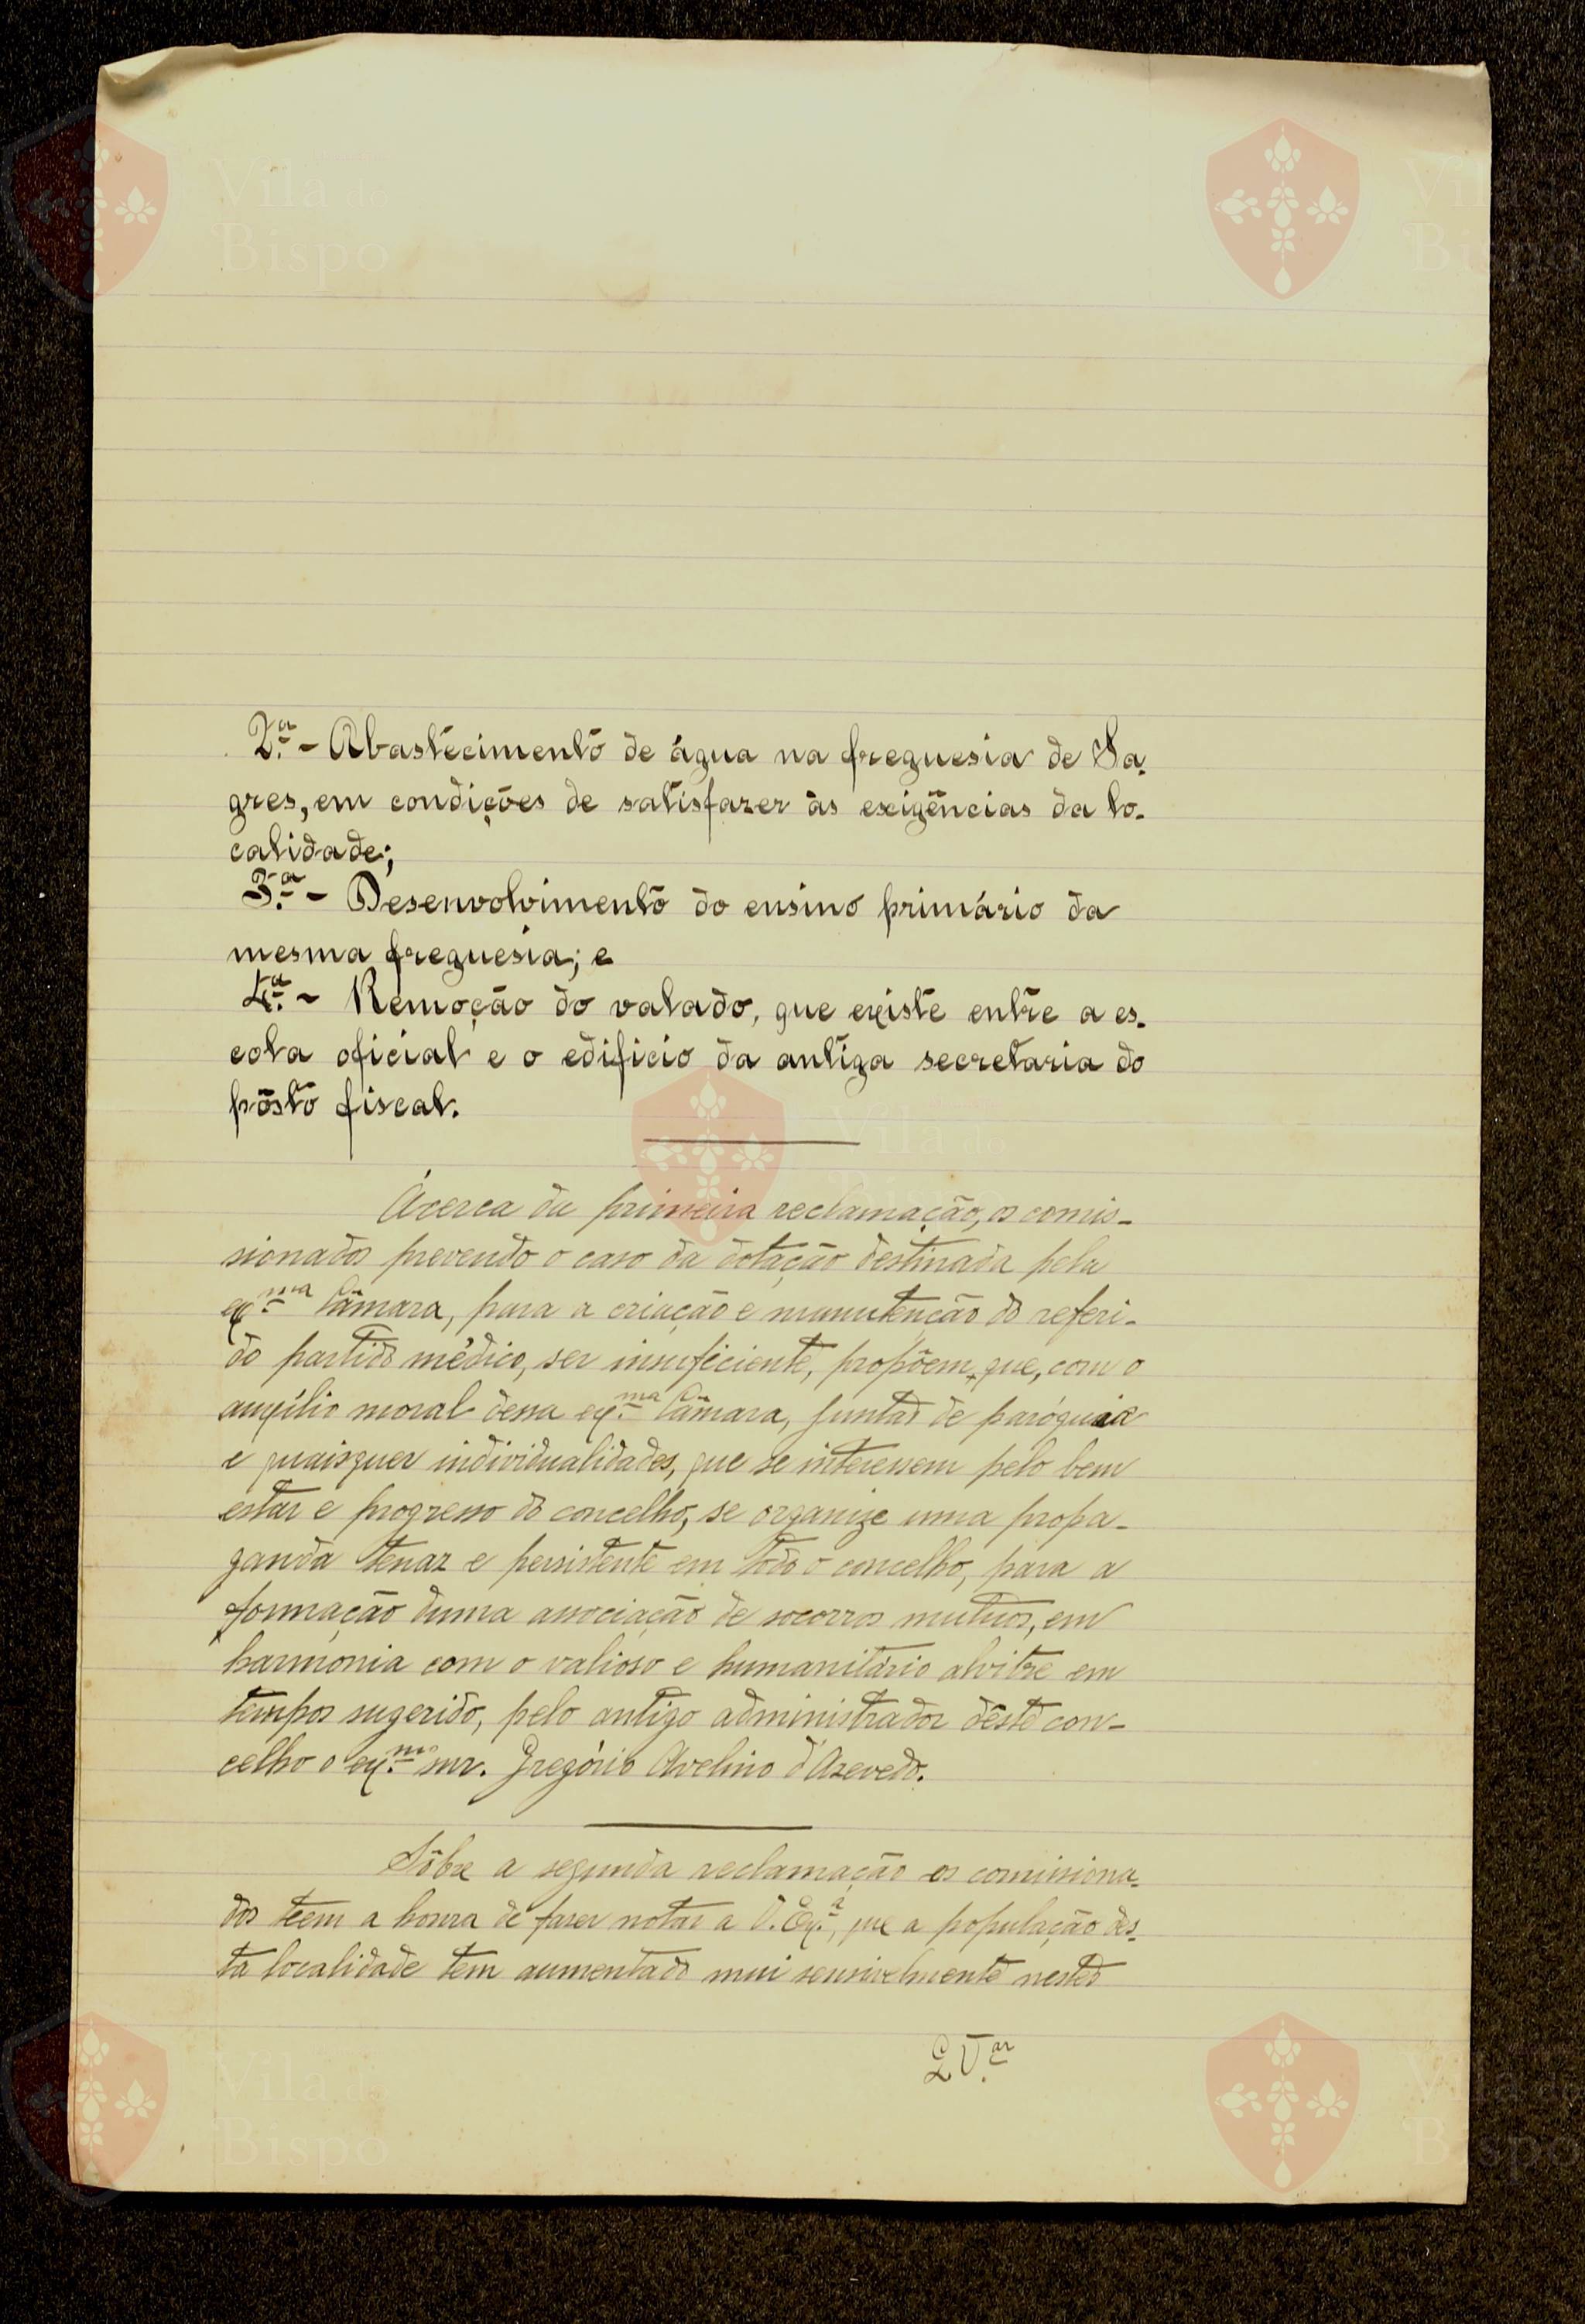 Vila do
Bispo
2.ª - Abastecimento de água na freguesia de Sa-
gres, em condições de satisfazer às exigências da lo-
calidade;
3.ª - Desenvolvimento do ensino primário da
mesma freguesia; e
4.ª - Remoção do valado, que existe entre a es-
cola oficial e o edificio da antiga secretaria do
pôsto fiscal.
Ácerca da primeira reclamação, os comis-
sionados prevendo o caso da dotação destinada pela
ex.ma Câmara, para a criação e manutenção do referi-
do partido médico, ser insuficiente, propõem, que, com o
auxílio moral dessa ex.ma Câmara, juntas de paróquia
e quaisquer individualidades, que se interessem pelo bem
estar e progresso do concelho, se organize uma propa-
ganda tenaz e persistente em todo o concelho, para a
formação duma associação de socorros mutuos, em
harmonia com o valioso e humanitário alvitre em
tempos sugerido, pelo antigo administrador dêste con-
celho o ex.mo snr. Gregório Avelino d'Azevedo.
Sôbre a segunda reclamação os comissiona-
dos teem a honra de fazer notar a V. Ex.ª, que a população des-
ta localidade tem aumentado mui sensivelmente nestes